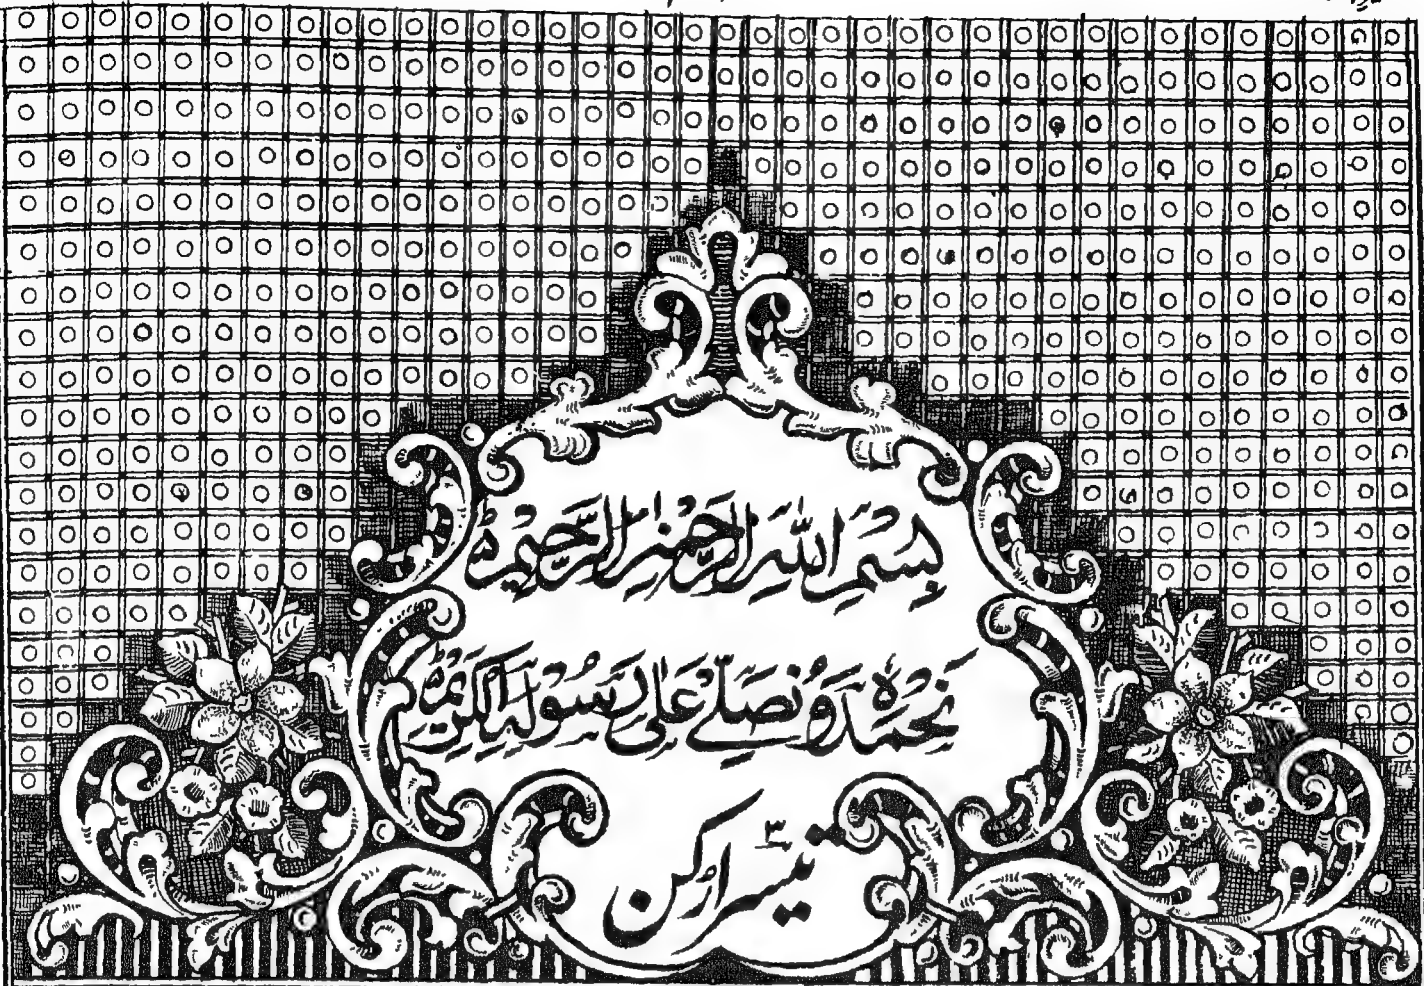 بِسْمِ اللّٰهِ الرَّحْمٰنِ الرَّحِيْمِ ۵
نَحْمَدُهٗ وَنُصَلِّىْ عَلٰى رَسُوْلِهِ الْكَرِيْمِ ۵
تیسرا رُکن